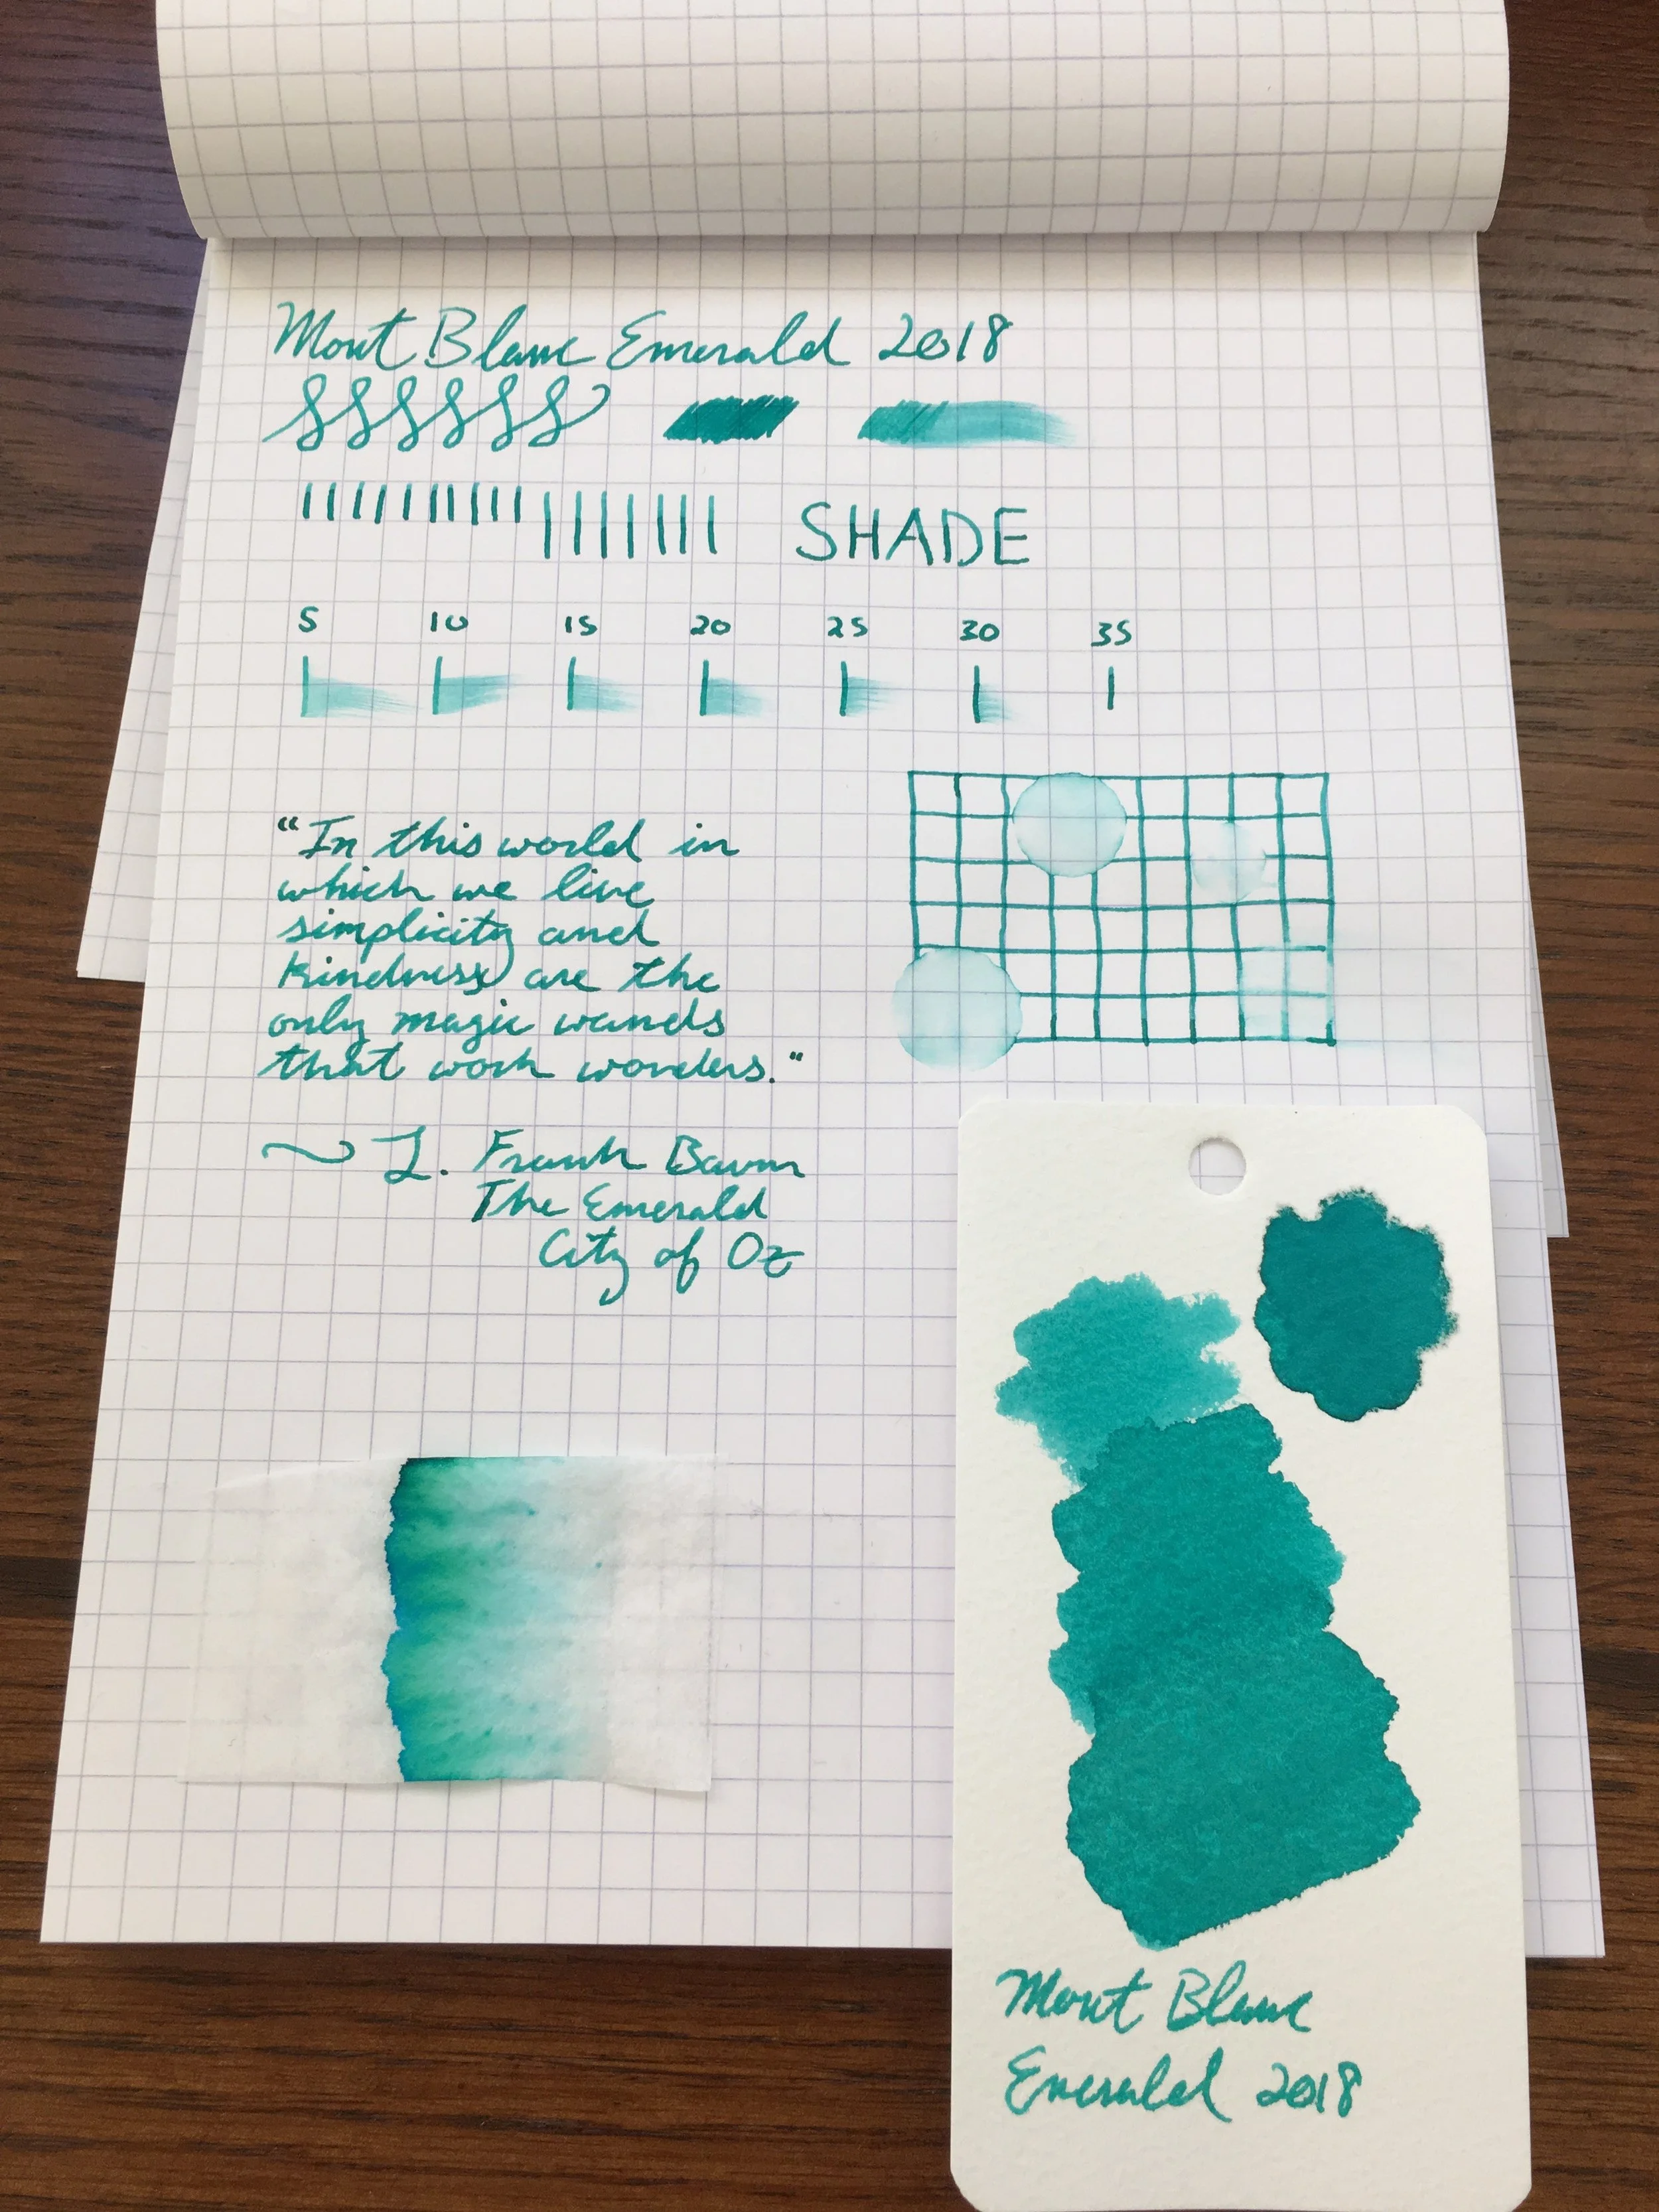 Mont Blanc Emerald 2018
SHADE
5 10 15 20 25 30 35
"In this world in
which we live
simplicity and
kindness are the
only magic wands
that work wonders."
~ L. Frank Baum
The Emerald
City of Oz
Mont Blanc
Emerald 2018